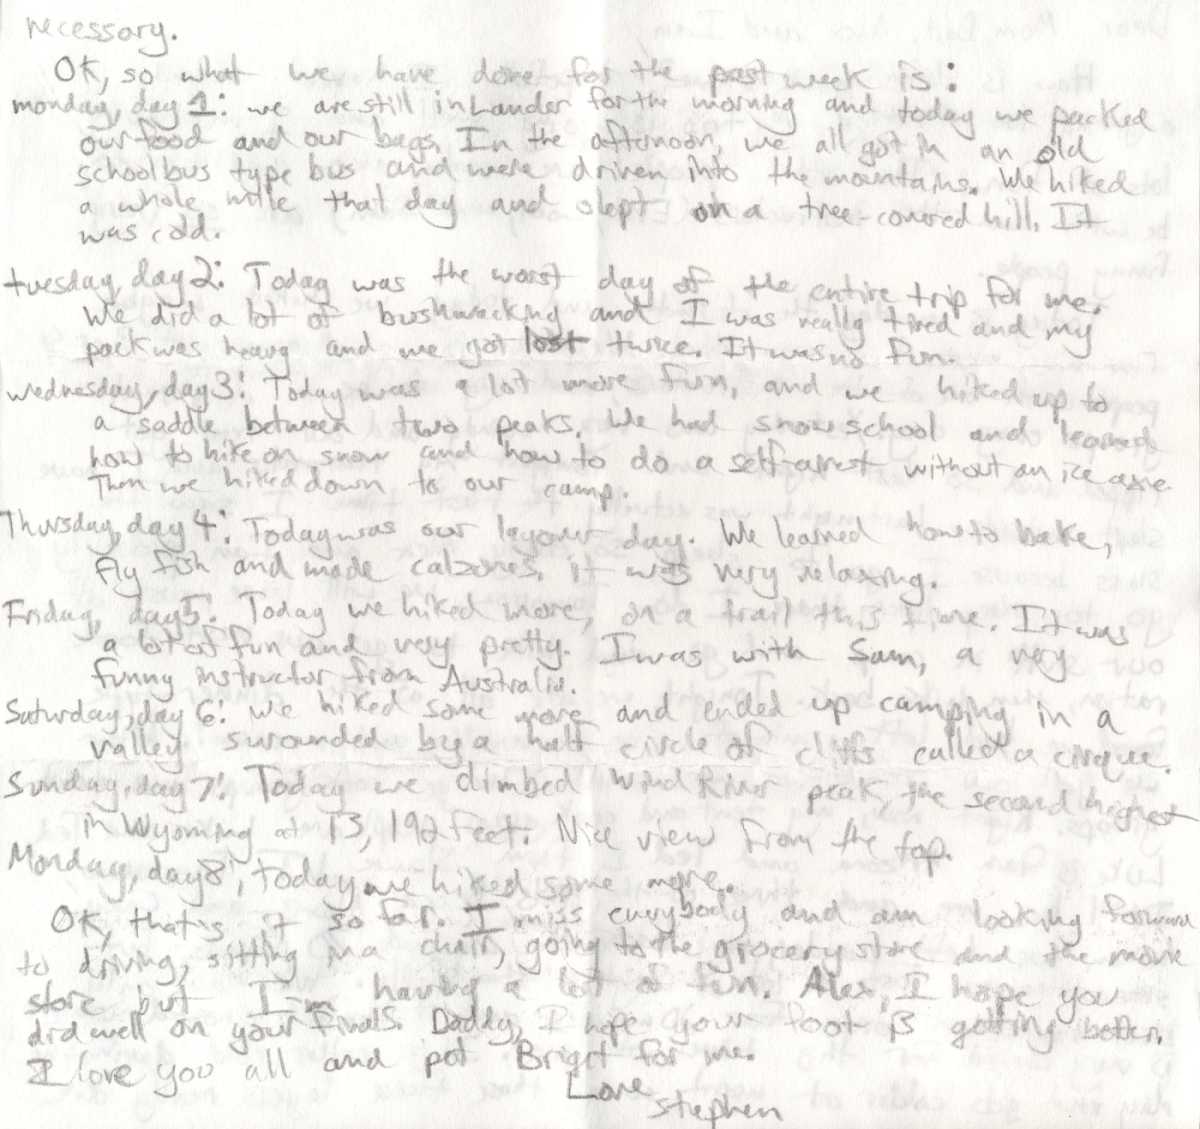 necessary.
OK, so what we have done for the past week is:
monday, day 1: we are still in Lander for the morning and today we packed
our food and our bags. In the afternoon, we all got in an old
school bus type bus and were driven into the mountains. We hiked
a whole mile that day and slept on a tree-covered hill. It
was cold.
tuesday, day 2: Today was the worst day of the entire trip for me.
We did a lot of bushwacking and I was really tired and my
pack was heavy and we got lost twice. It was no fun.
wednesday, day 3: Today was a lot more fun, and we hiked up to
a saddle between two peaks. We had snow school and learned
how to hike on snow and how to do a self arrest without an ice axe.
Then we hiked down to our camp.
Thursday, day 4: Today was our layour day. We learned how to bake,
fly fish and made calzones, it was very relaxing.
Friday, day 5: Today we hiked more, on a trail this time. It was
a lot of fun and very pretty. I was with Sam, a very
funny instructor from Australia.
Saturday, day 6: we hiked some more and ended up camping in a
valley surounded by a half circle of cliffs called a cirque.
Sunday, day 7: Today we climbed Wind River peak, the second highest
in Wyoming at 13,192 feet. Nice view from the top.
Monday, day 8, today we hiked some more.
OK, that's it so far. I miss everybody and am looking forward
to driving, sitting in a chair, going to the grocery store and the movie
store but I'm having a lot of fun. Alex, I hope you
did well on your finals. Daddy, I hope your foot is getting better.
I love you all and pet Briget for me.
Love
Stephen